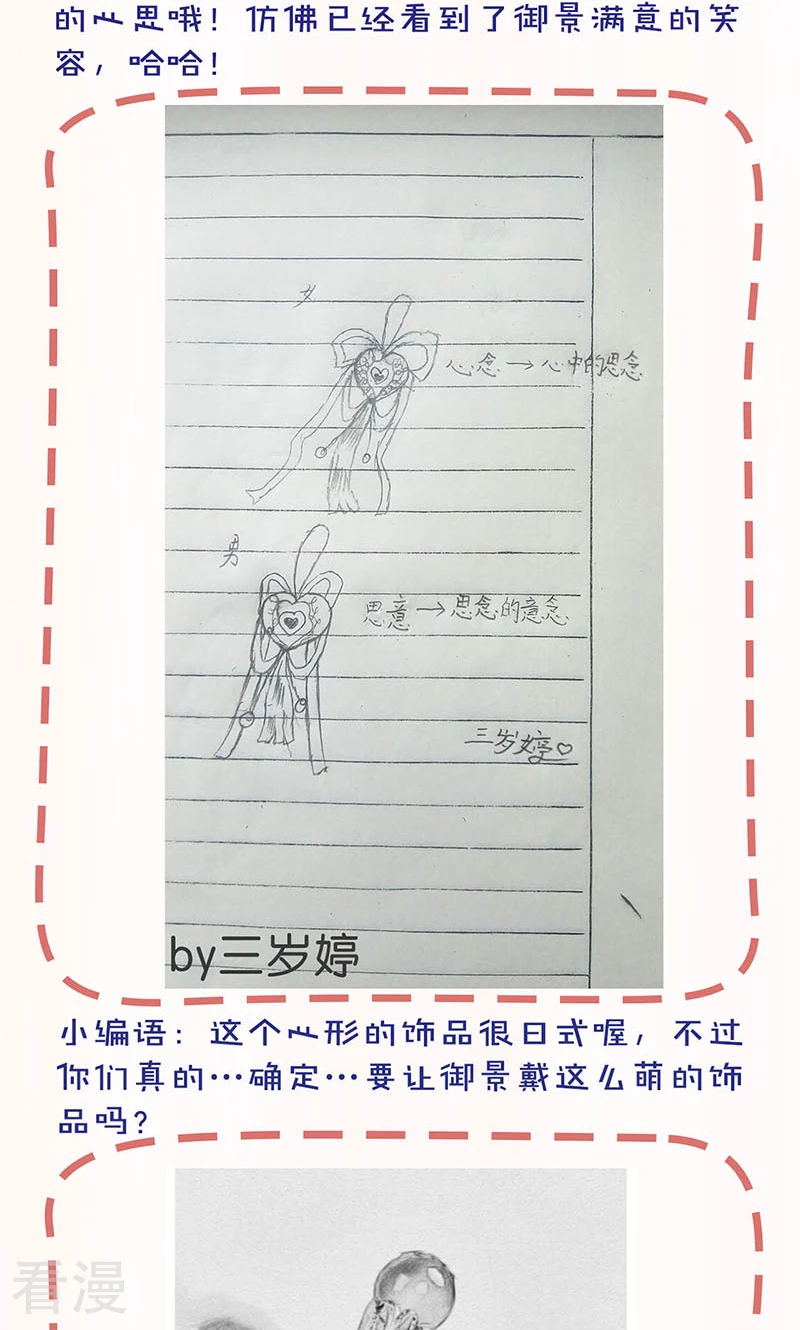 的心思哦！仿佛已经看到了御景满意的笑
容，哈哈！
女
心念→心中的思念
男
思意→思念的意念
三岁婷♡
by三岁婷
小编语：这个心形的饰品很日式喔，不过
你们真的…确定…要让御景戴这么萌的饰
品吗？
看漫